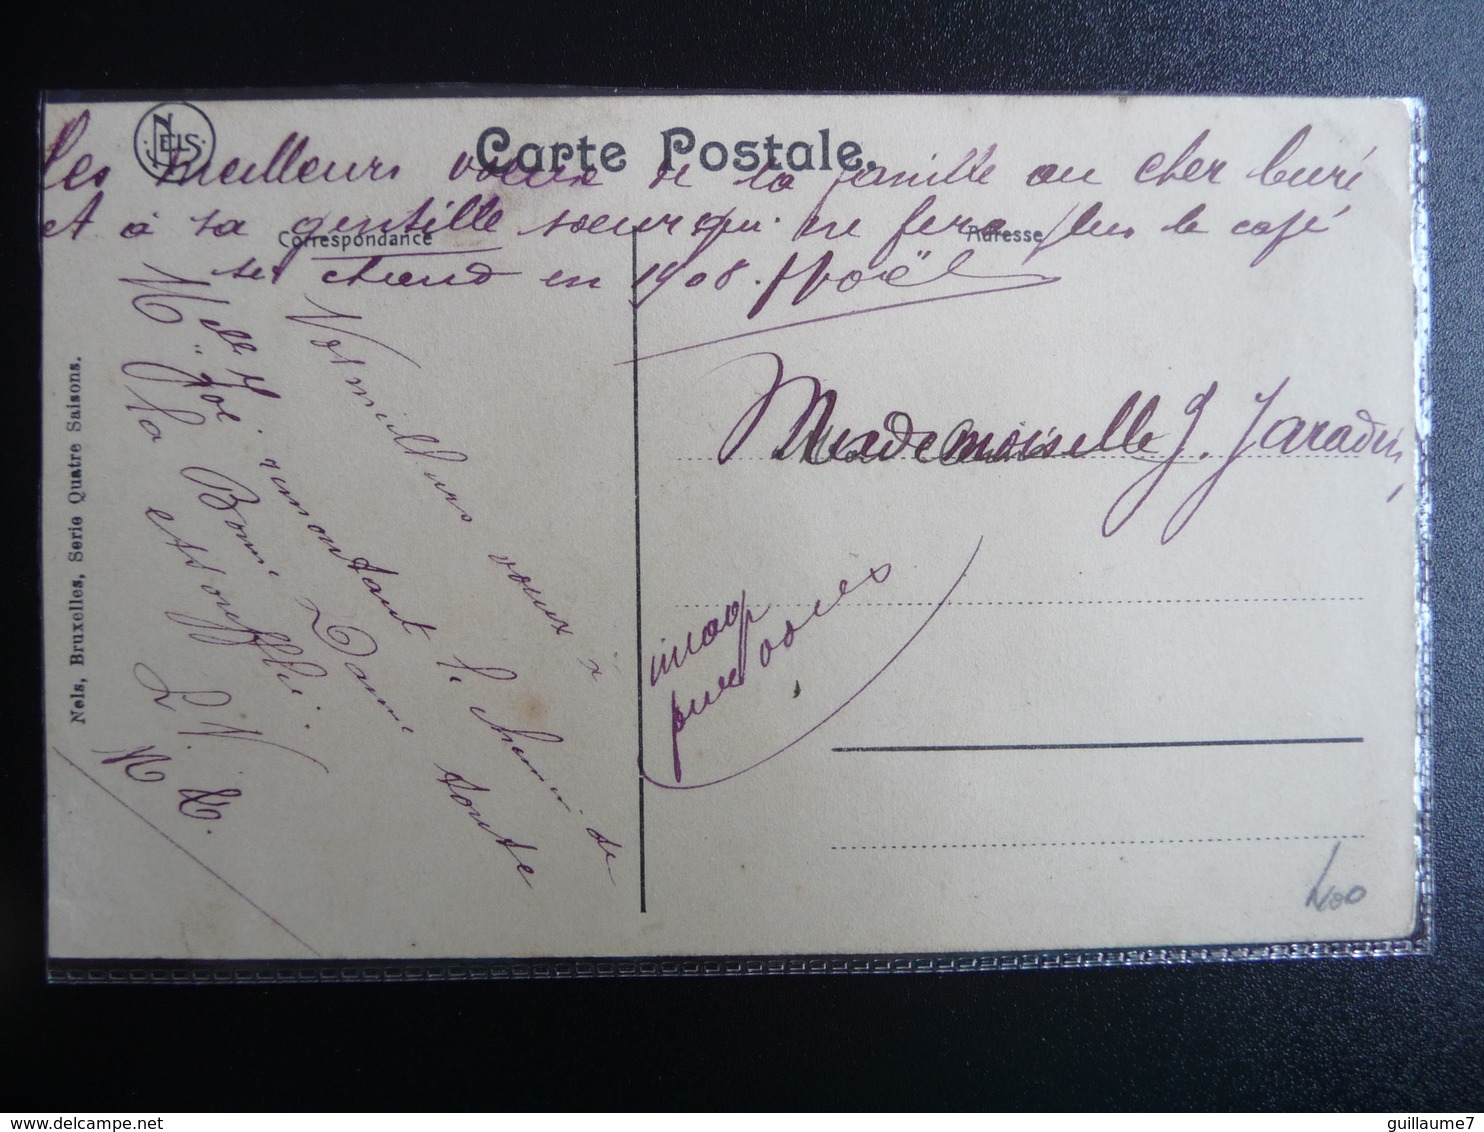 NELS
Carte Postale.
Les meilleurs vœux de la famille au cher Curé
et à sa gentille sœur qui ne fera plus le café
si chaud en 1908. Noël
Correspondance
Adresse
Nos meilleurs vœux à
Melle J. remontant le chemin de
la Bonne Dame toute
essoufflée.
L. N.
Mademoiselle J.
Nels, Bruxelles, Serie Quatre Saisons.
400
guillaume7